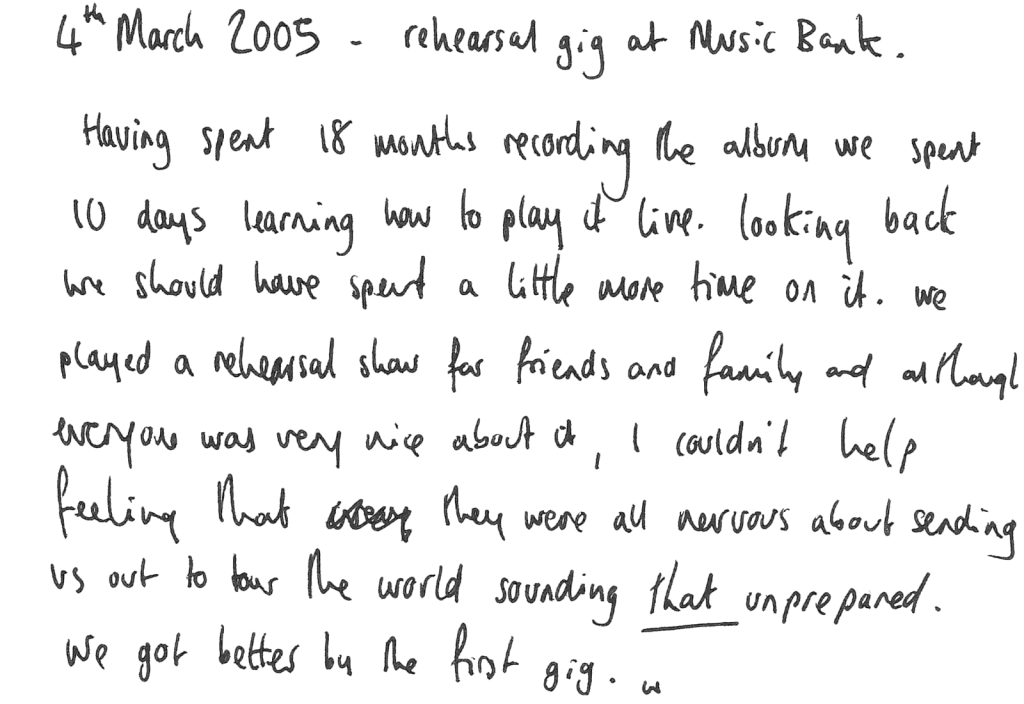 4th March 2005 - rehearsal gig at Music Bank.
Having spent 18 months recording the album we spent
10 days learning how to play it live. looking back
we should have spent a little more time on it. we
played a rehearsal show for friends and family and although
everyone was very nice about it, I couldn't help
feeling that they were all nervous about sending
us out to tour the world sounding that unprepared.
We got better by the first gig. w